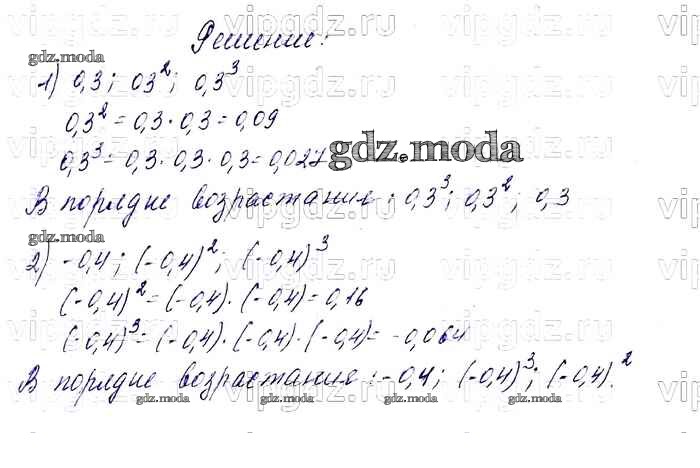 vipgdz.ru vipgdz.ru vipgdz.ru
Решение:
gdz.moda
1) 0,3; 0,3²; 0,3³
vipgdz.ru vipgdz.ru vipgdz.ru
0,3² = 0,3 · 0,3 = 0,09
0,3³ = 0,3 · 0,3 · 0,3 = 0,027
gdz.moda
В порядке возрастания: 0,3³; 0,3²; 0,3
gdz.moda
2) -0,4; (-0,4)²; (-0,4)³
(-0,4)² = (-0,4) · (-0,4) = 0,16
(-0,4)³ = (-0,4) · (-0,4) · (-0,4) = -0,064
В порядке возрастания: -0,4; (-0,4)³; (-0,4)².
gdz.moda gdz.moda gdz.moda
vipgdz.ru vipgdz.ru vipgdz.ru